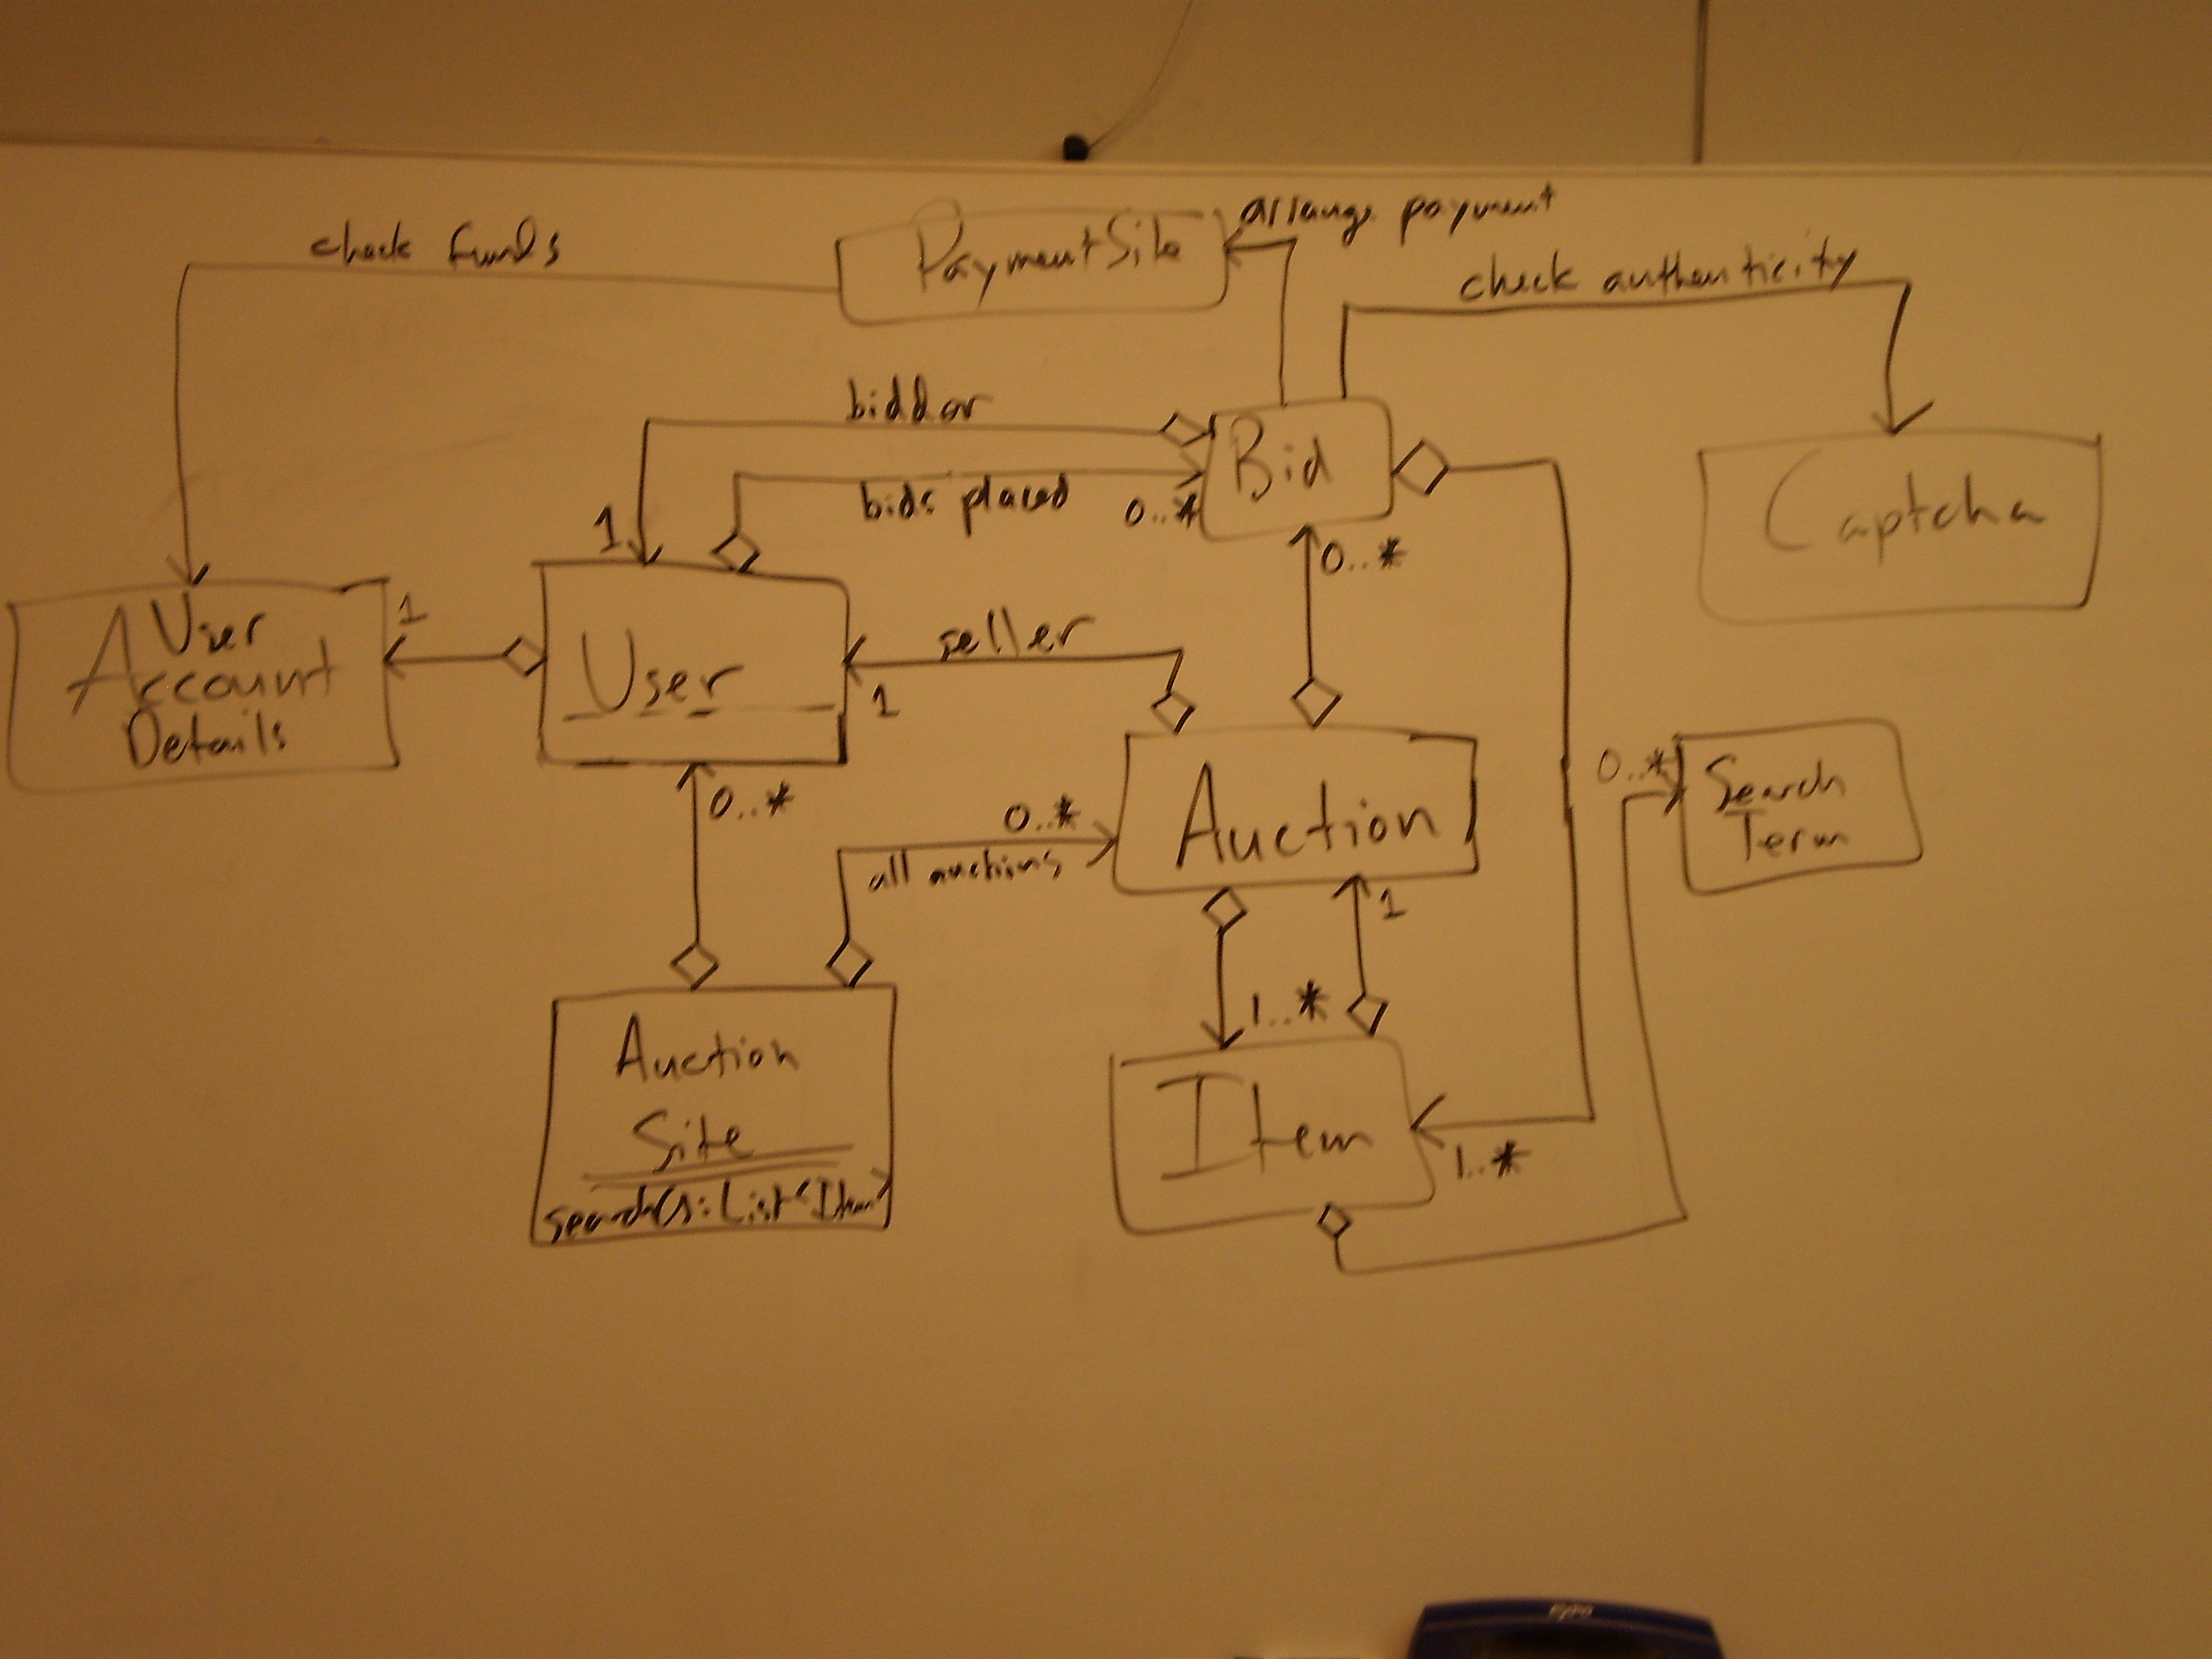 arrange payment
check funds
PaymentSite
check authenticity
bidder
Bid
bids placed
0..*
1
Captcha
0..*
User
Account
Details
1
User
seller
1
0..*
Auction
0..*
all auctions
0..*
Search
Term
1
1..*
Auction
Site
search(): List<Item>
Item
1..*